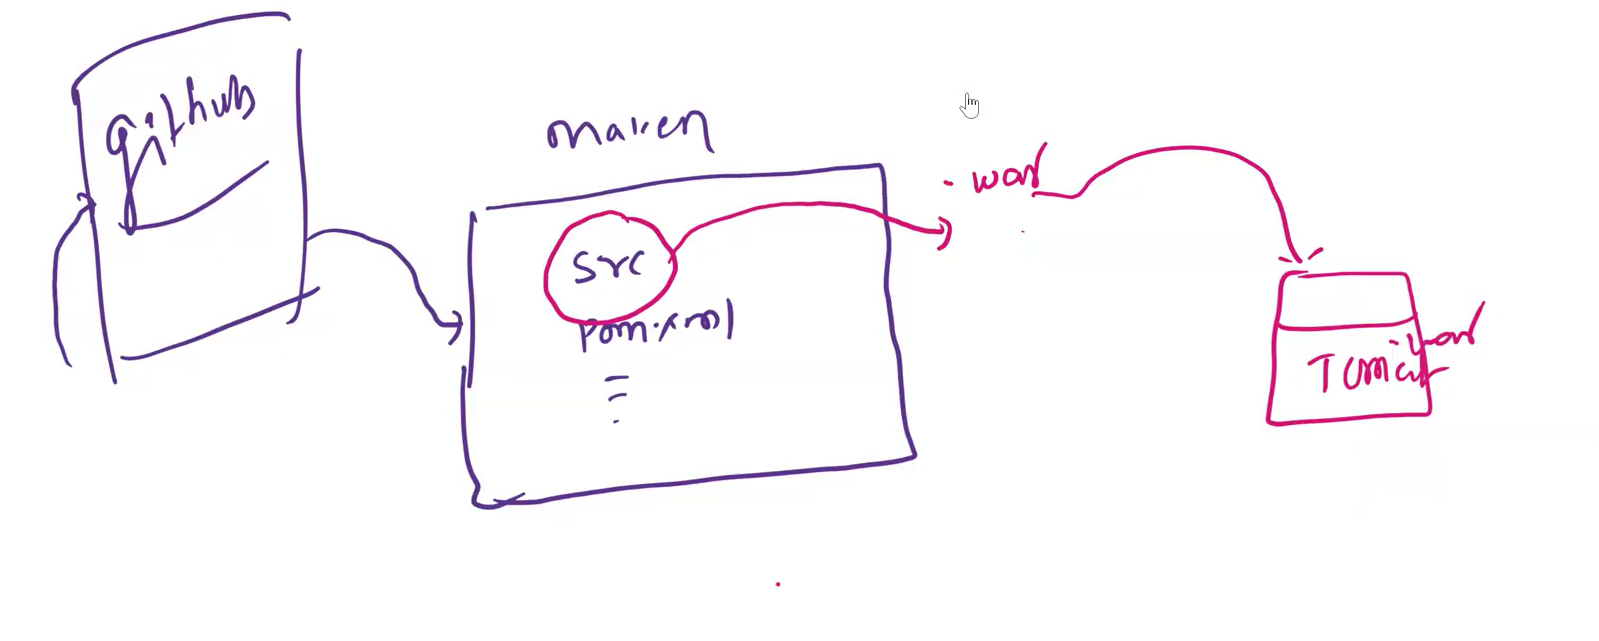 github
maven
src
pom.xml
.war
.war
Tomcat